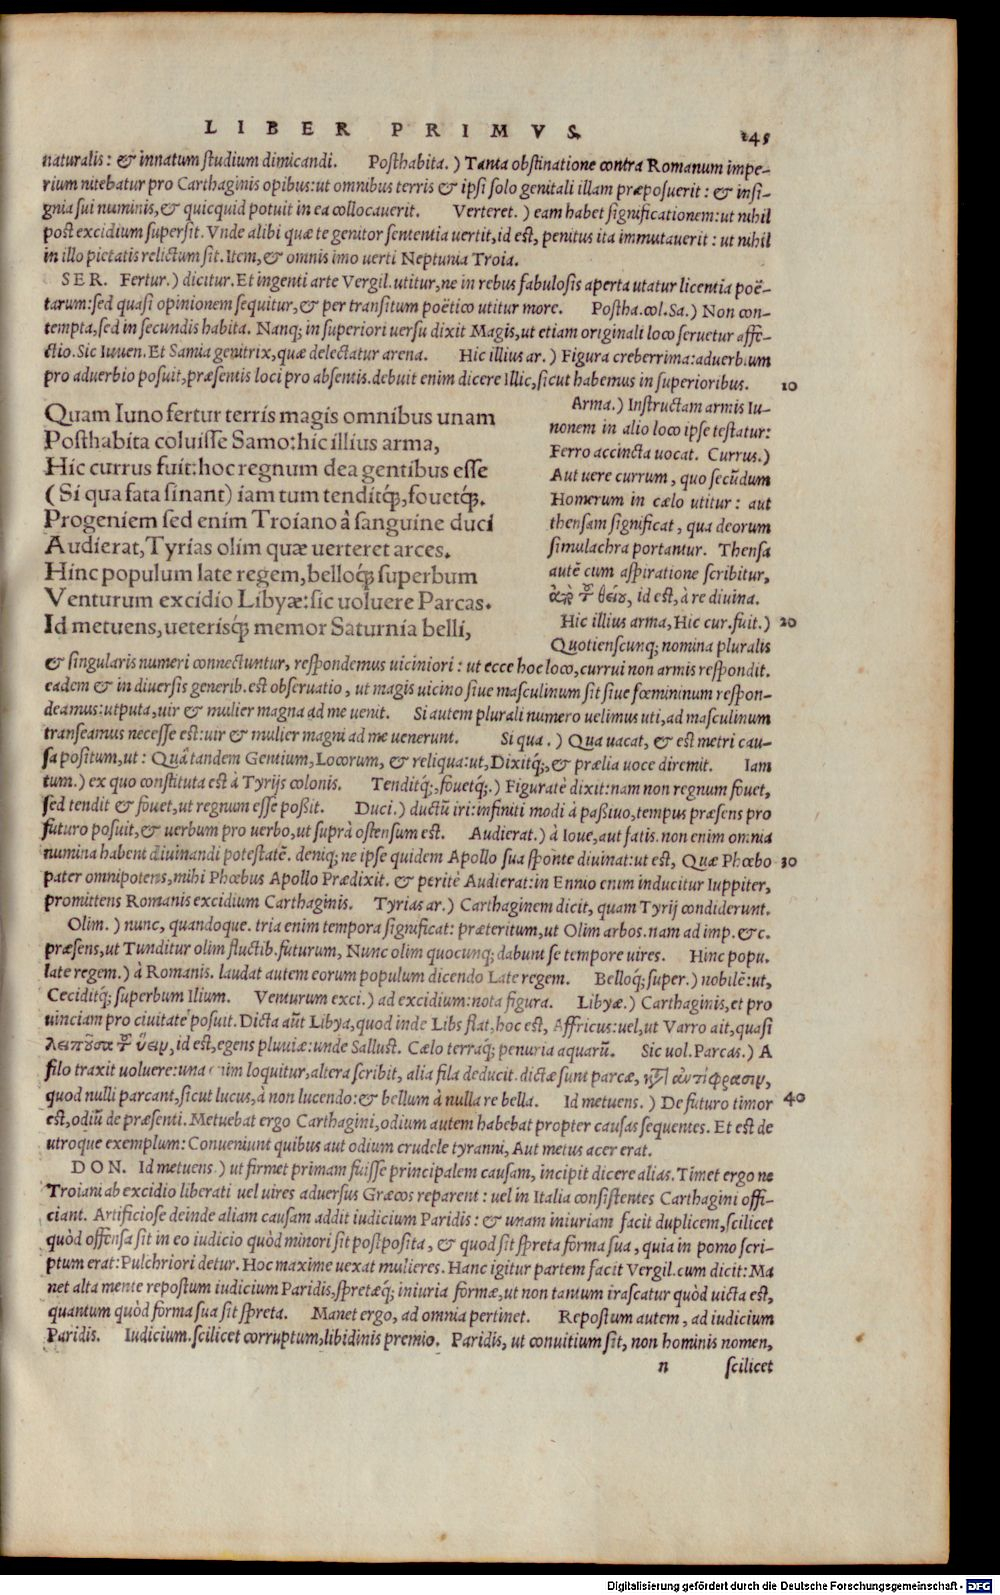 LIBER PRIMVS. 145
naturalis: & innatum studium dimicandi. Posthabita.) Tanta obstinatione contra Romanum impe-
rium nitebatur pro Carthaginis opibus: ut omnibus terris & ipsi solo genitali illam præposuerit: & insi-
gnia sui numinis, & quicquid potuit in ea collocauerit. Verteret.) eam habet significationem: ut nihil
post excidium supersit. Vnde alibi quæ te genitor sententia uertit, id est, penitus ita immutauerit: ut nihil
in illo pietatis relictum sit. Item, & omnis imo uerti Neptunia Troia.
SER. Fertur.) dicitur. Et ingenti arte Vergil. utitur, ne in rebus fabulosis aperta utatur licentia poë-
tarum: sed quasi opinionem sequitur, & per transitum poëtico utitur more. Postha. col. Sa.) Non con-
tempta, sed in secundis habita. Nanq; in superiori uersu dixit Magis, ut etiam originali loco seruetur affe-
ctio. Sic Iuuen. Et Samia genitrix, quæ delectatur arena. Hic illius ar.) Figura creberrima: aduerb. um
pro aduerbio posuit, præsentis loci pro absentis. debuit enim dicere Illic, sicut habemus in superioribus. 10
Quam Iuno fertur terris magis omnibus unam
Posthabita coluisse Samo: hic illius arma,
Hic currus fuit: hoc regnum dea gentibus esse
(Si qua fata sinant) iam tum tenditq́;, fouetq́;.
Progeniem sed enim Troiano à sanguine duci
Audierat, Tyrias olim quæ uerteret arces.
Hinc populum late regem, belloq́; superbum
Venturum excidio Libyæ: sic uoluere Parcas.
Id metuens, ueterisq́; memor Saturnia belli,
Arma.) Instructam armis Iu-
nonem in alio loco ipse testatur:
Ferro accincta uocat. Currus.)
Aut uere currum, quo secūdum
Homerum in cælo utitur: aut
thensam significat, qua deorum
simulachra portantur. Thensa
autē cum aspiratione scribitur,
θείου, id est, à re diuina.
Hic illius arma, Hic cur. fuit.) 20
Quotienscunq; nomina pluralis
& singularis numeri connectuntur, respondemus uiciniori: ut ecce hoc loco, currui non armis respondit.
eadem & in diuersis generib. est obseruatio, ut magis uicino siue masculinum sit siue fœmininum respon-
deamus: utputa, uir & mulier magna ad me uenit. Si autem plurali numero uelimus uti, ad masculinum
transeamus necesse est: uir & mulier magni ad me uenerunt. Si qua.) Qua uacat, & est metri cau-
sa positum, ut: Quā tandem Gentium, Locorum, & reliqua: ut, Dixitq́;, & prælia uoce diremit. Iam
tum.) ex quo constituta est à Tyrijs colonis. Tenditq́;, fouetq́;.) Figuratè dixit: nam non regnum fouet,
sed tendit & fouet, ut regnum esse poßit. Duci.) ductū iri: infiniti modi à paßiuo, tempus præsens pro
futuro posuit, & uerbum pro uerbo, ut suprà ostensum est. Audierat.) à Ioue, aut fatis. non enim omnia
numina habent diuinandi potestatē. deniq; ne ipse quidem Apollo sua sponte diuinat: ut est, Quæ Phœbo 30
pater omnipotens, mihi Phœbus Apollo Prædixit. & peritè Audierat: in Ennio enim inducitur Iuppiter,
promittens Romanis excidium Carthaginis. Tyrias ar.) Carthaginem dicit, quam Tyrij condiderunt.
Olim.) nunc, quandoque. tria enim tempora significat: præteritum, ut Olim arbos. nam ad imp. &c.
præsens, ut Tunditur olim fluctib. futurum, Nunc olim quocunq; dabunt se tempore uires. Hinc popu.
late regem.) à Romanis. laudat autem eorum populum dicendo Late regem. Belloq́; super.) nobilē: ut,
Ceciditq́; superbum Ilium. Venturum exci.) ad excidium: nota figura. Libyæ.) Carthaginis, et pro
uinciam pro ciuitate posuit. Dicta aūt Libya, quod inde Libs flat, hoc est, Affricus: uel, ut Varro ait, quasi
λειποῦσα ὕειν, id est, egens pluuiæ: unde Sallust. Cælo terraq́; penuria aquarū. Sic uol. Parcas.) A
filo traxit uoluere: una enim loquitur, altera scribit, alia fila deducit. dictæ sunt parcæ, ἀντίφρασιν,
quod nulli parcant, sicut lucus, à non lucendo: & bellum à nulla re bella. Id metuens.) De futuro timor 40
est, odiū de præsenti. Metuebat ergo Carthagini, odium autem habebat propter causas sequentes. Et est de
utroque exemplum: Conueniunt quibus aut odium crudele tyranni, Aut metus acer erat.
DON. Id metuens.) ut firmet primam fuisse principalem causam, incipit dicere alias. Timet ergo ne
Troiani ab excidio liberati uel uires aduersus Græcos reparent: uel in Italia consistentes Carthagini offi-
ciant. Artificiose deinde aliam causam addit iudicium Paridis: & unam iniuriam facit duplicem, scilicet
quòd offensa sit in eo iudicio quòd minori sit postposita, & quod sit spreta forma sua, quia in pomo scri-
ptum erat: Pulchriori detur. Hoc maxime uexat mulieres. Hanc igitur partem facit Vergil. cum dicit: Ma
net alta mente repostum iudicium Paridis, spretæq́; iniuria formæ, ut non tantum irascatur quòd uicta est,
quantum quòd forma sua sit spreta. Manet ergo, ad omnia pertinet. Repostum autem, ad iudicium
Paridis. Iudicium. scilicet corruptum, libidinis premio. Paridis, ut conuitium sit, non hominis nomen,
n scilicet
Digitalisierung gefördert durch die Deutsche Forschungsgemeinschaft - DFG